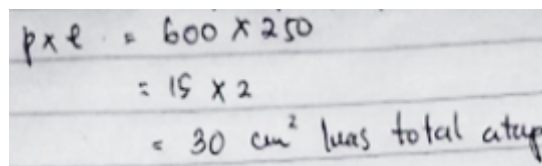 p x l = 600 x 250
= 15 x 2
= 30 cm² luas total atap